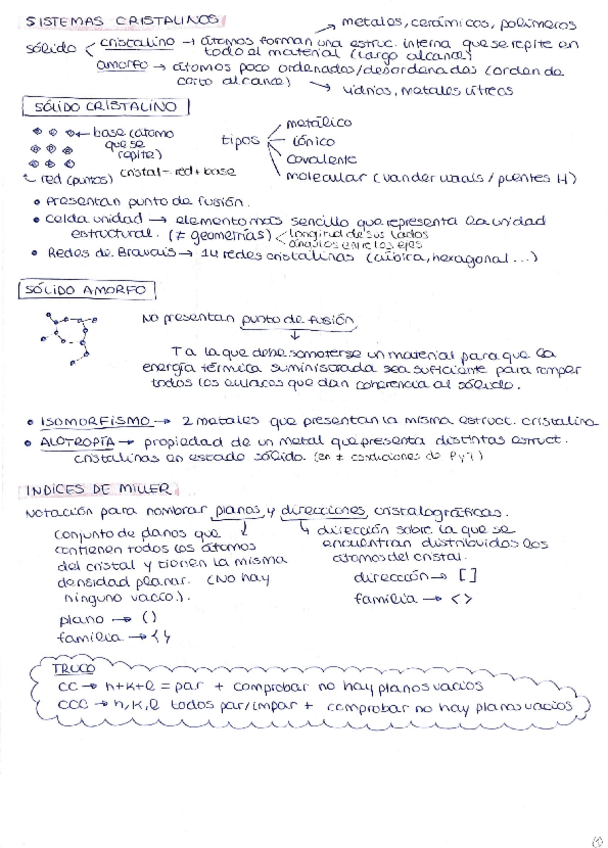 SISTEMAS CRISTALINOS
→ metales, cerámicos, polímeros
sólido < cristalino → átomos forman una estruc. interna que se repite en
todo el material (largo alcance)
amorfo → átomos poco ordenados/desordenados (orden de
corto alcance)
→ vidrios, metales vítreos
SÓLIDO CRISTALINO
← base (átomo
que se
repite)
red (puntos)
cristal = red + base
tipos
metálico
iónico
covalente
molecular (van der waals / puentes H)
• Presentan punto de fusión.
• Celda unidad → elemento más sencillo que representa la unidad
estructural. (≠ geometrías) < longitud de sus lados
ángulos entre los ejes
• Redes de Bravais → 14 redes cristalinas (cúbica, hexagonal ...)
SÓLIDO AMORFO
No presentan punto de fusión
↓
T a la que debe someterse un material para que la
energía térmica suministrada sea suficiente para romper
todos los enlaces que dan coherencia al sólido.
• ISOMORFISMO → 2 metales que presentan la misma estruct. cristalina
• ALOTROPÍA → propiedad de un metal que presenta distintas estruct.
cristalinas en estado sólido. (en ≠ condiciones de P y T)
INDICES DE MILLER
Notación para nombrar planos y direcciones cristalográficas.
conjunto de planos que
contienen todos los átomos
del cristal y tienen la misma
densidad planar. (No hay
ninguno vacío.).
plano → ()
familia → {}
dirección sobre la que se
encuentran distribuidos los
átomos del cristal.
dirección → []
familia → <>
TRUCO
CC → h+k+l = par + comprobar no hay planos vacios
CCC → h,k,l todos par/impar + comprobar no hay planos vacios
①